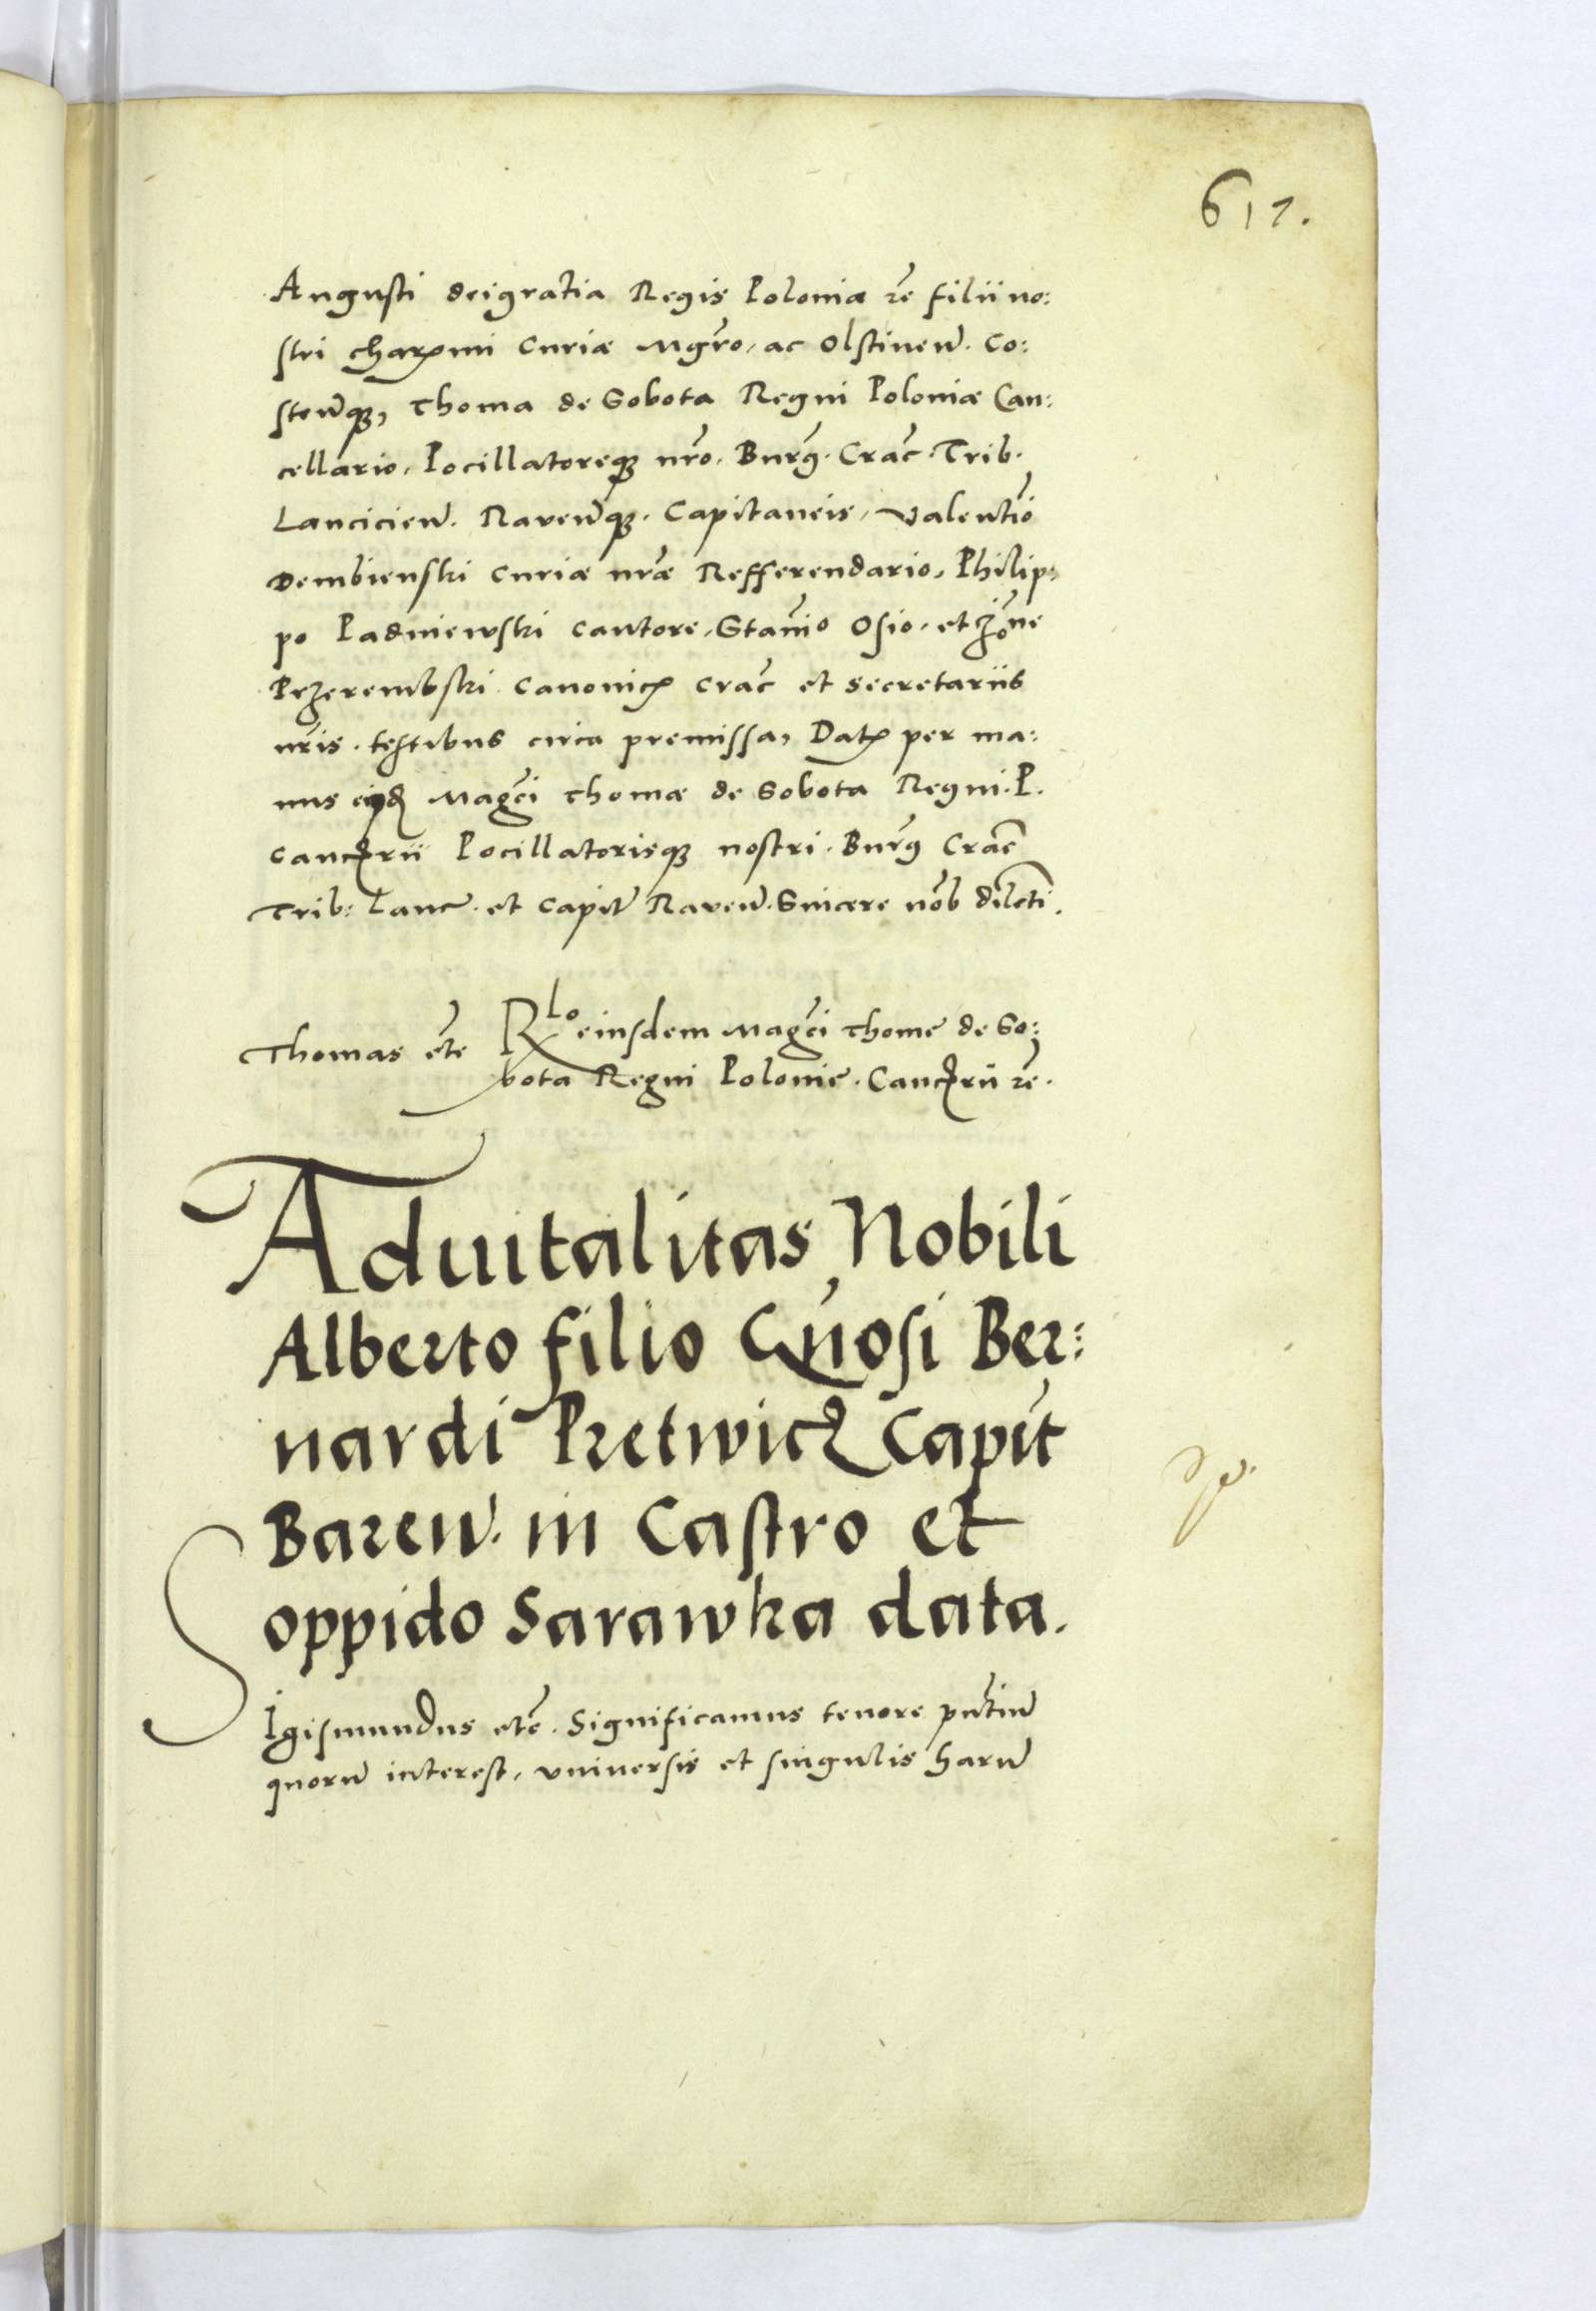 617.
Augusti dei gratia Regis Poloniæ rē filii no:
stri charmi Curiæ Mgr̄o, ac Olstinen̄. Co:
sten̄q̨, Thoma de Sobota Regni Poloniæ Can:
cellario, Pocillatoreq̨ nr̄o, Burg̃. Crac̃. Trib.
Lancicien̄. Raven̄q̨. Capitaneis, Valent̄io
Dembienski Curiæ nr̄æ Refferendario, Philip:
po Padniewski Cantore, Stan̄io Osio, et Jōne
Przerembski Canonic̨ Crac̃ et Secretariis
nr̄is. testibus circa premissa, Dat̨ per ma:
nus eiusd̨ Magc̃i Thomæ de Sobota Regni. P.
Canc̨rii Pocillatorisq̨ nostri. Burg̃ Crac̃
Trib: Lanc̃. et Capit̃ Raven̄. Sincere nōb dilecti.
Thomas etc̃
Rlo eiusdem Magc̃i Thome de So:
bota Regni Polonie. Canc̨rii rē.
Advitalitas Nobili
Alberto filio Gn̄osi Ber:
nardi Pretwicz Capit̃
Baren̄. in Castro et
oppido Sarawka data.
Sigismundus etc̃. Significamus tenore pn̄tiū
quorū interest, universis et singulis harū